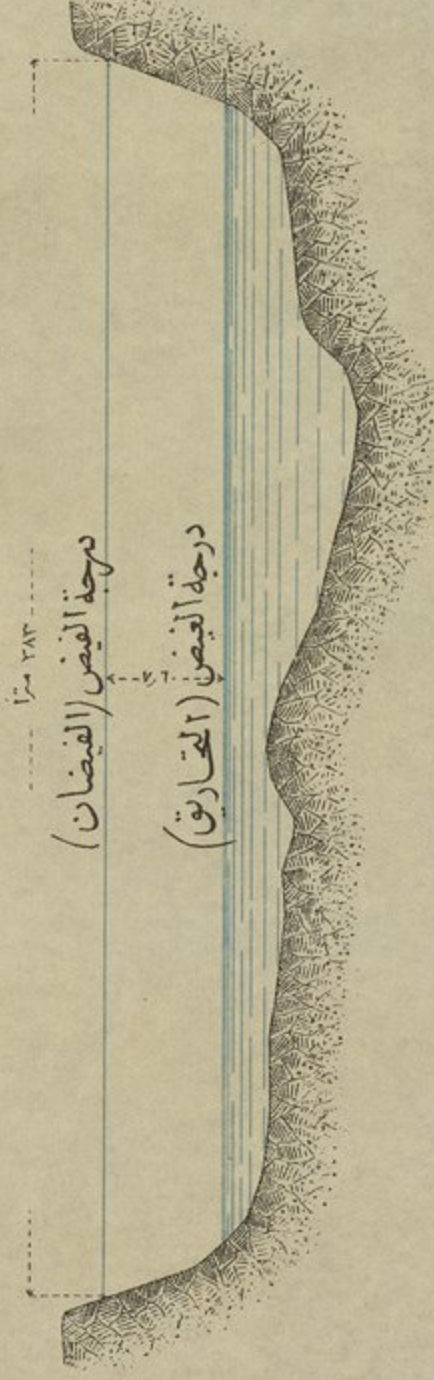 ٢٨٣ مترًا
درجة الفيض (الفيضان)
٧٫٦
درجة الغيض (التحاريق)